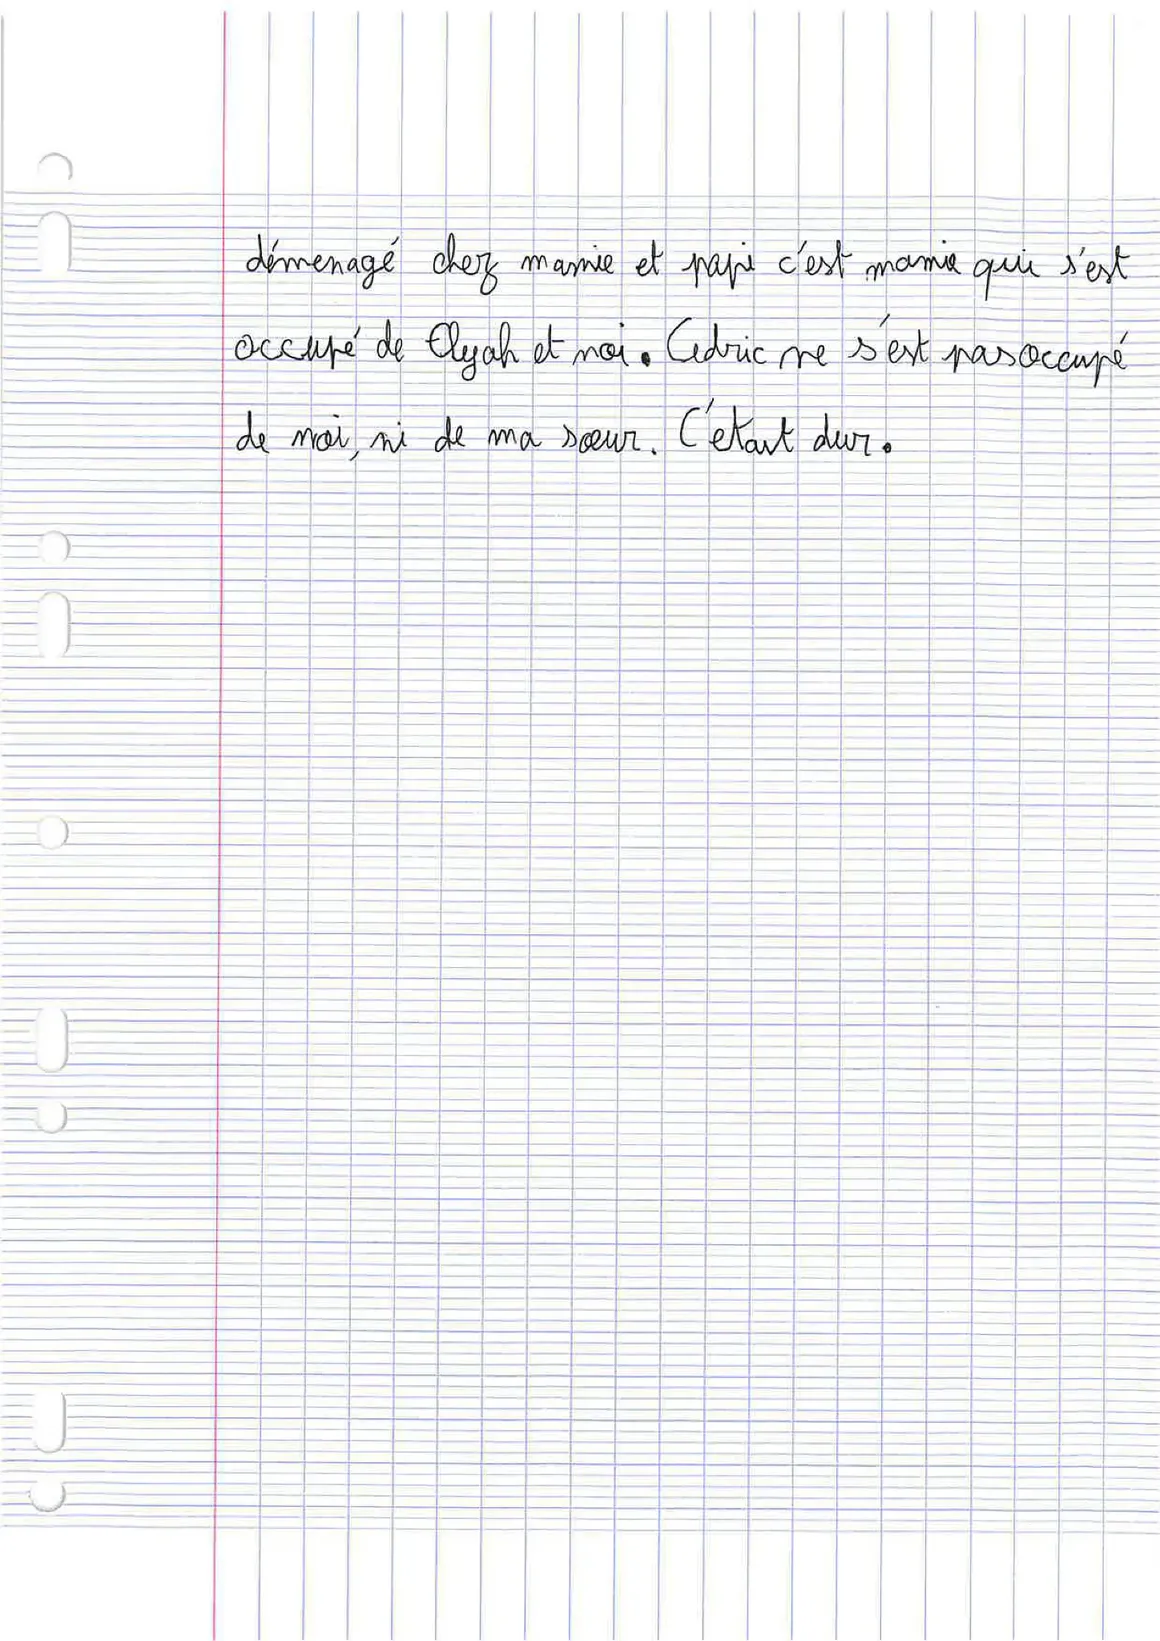 démenagé chez mamie et papi c'est mamie qui s'est
occupé de Elyah et moi. Cedric ne s'est pas occupé
de moi, ni de ma sœur. C'était dur.